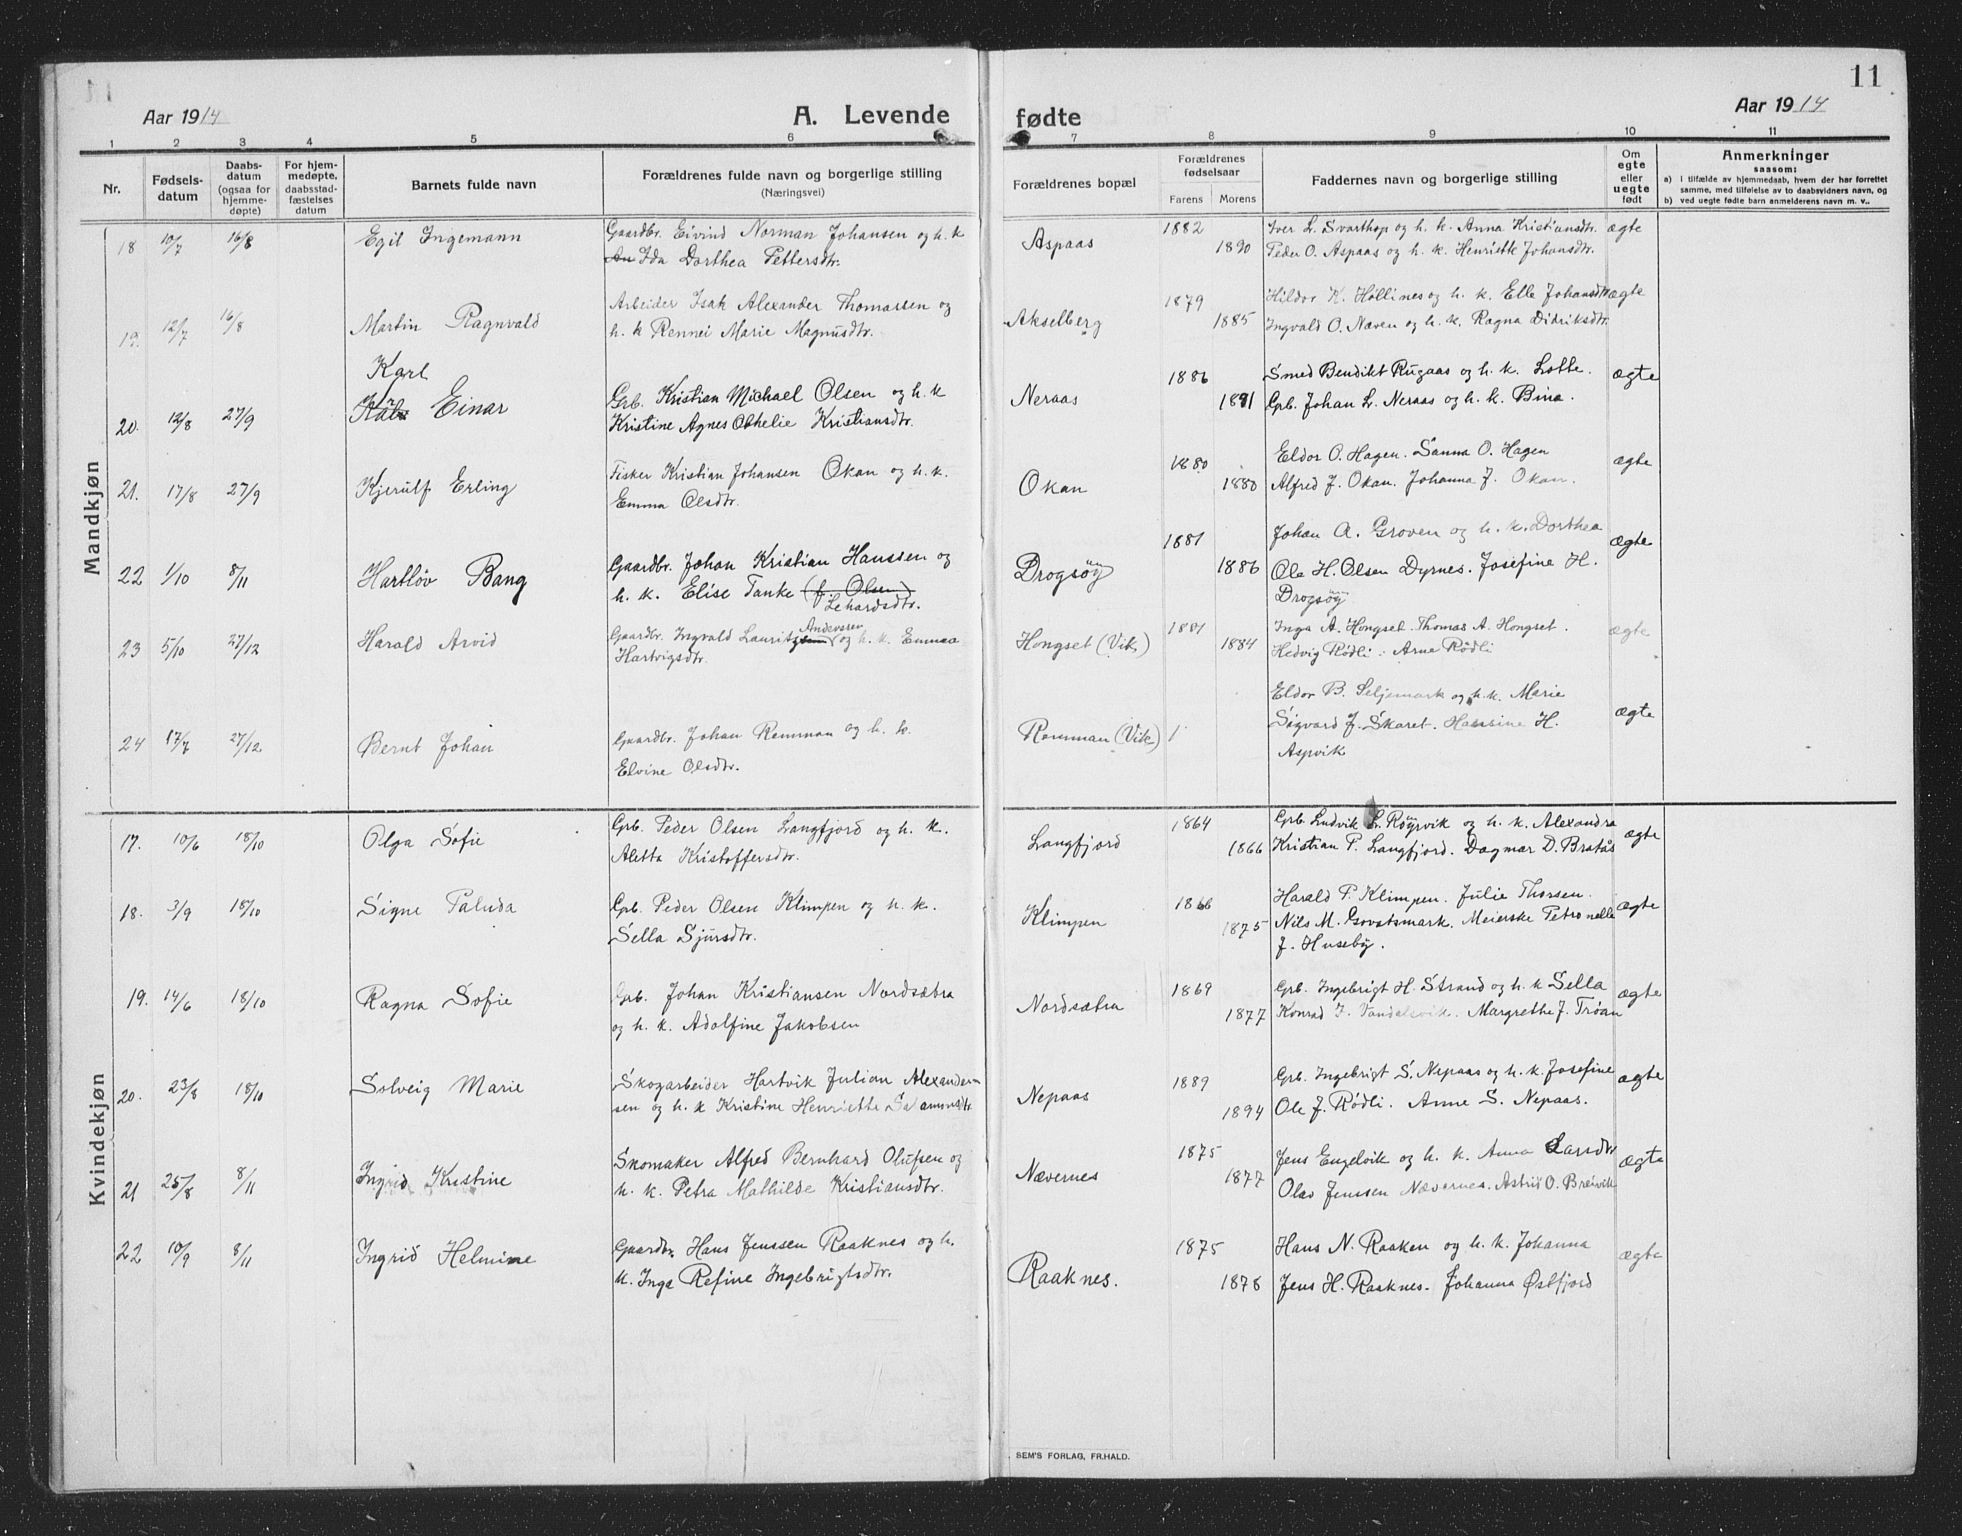 11
Aar 1914
A. Levende fødte
Aar 1914
1 2 3 4 5 6 7 8 9 10 11
Nr.
Fødsels-
datum
Daabs-
datum
(ogsaa for
hjemme-
døpte)
For hjem-
medøpte,
daabsstad-
fæstelses
datum
Barnets fulde navn
Forældrenes fulde navn og borgerlige stilling
(Næringsvei)
Forældrenes bopæl
Forældrenes
fødselsaar
Farens Morens
Faddernes navn og borgerlige stilling
Om
egte
eller
uegte
født
Anmerkninger
saasom:
a) i tilfælde av hjemmedaab, hvem der har forrettet
samme, med tilføielse av to daabsvidners navn, og
b) ved uegte fødte barn anmelderens navn m. v..
Mandkjøn
18 10/7 16/8 Egil Ingemann
Gaardbr. Eivind Norman Johansen og h. k
An Ida Dorthea Pettersdtr.
Aspaas 1882 1890
Iver L. Svarthop og h. k. Anna Kristiansdtr.
Peder O. Aspaas og h. k. Henriette Johansdtr.
ægte
19. 12/7 16/8 Martin Ragnvald
Arbeider Isak Alexander Thomassen og
h. k Rennei Marie Magnusdtr.
Akselberg 1879 1885
Hildor K. Hollines og h. k. Elle Johansdtr
Ingvald O. Næven og h. k. Ragna Didriksdtr.
ægte
Karl
20. 12/8 27/9 Einar
Grb. Kristian Michael Olsen og h. k
Kristine Agnes Othelie Kristiansdtr.
Neraas 1886 1891
Smed Bendikt Rugaas og h. k. Lotte.
Grb. Johan L. Neraas og h. k. Bina.
ægte
21. 17/8 27/9 Kjerulf Erling
Fisker Kristian Johansen Okan og h. k.
Emma Olsdtr.
Okan 1880 1880
Eldor O. Hagen. Sanna O. Hagen
Alfred J. Okan. Johanna J. Okan.
ægte
22 1/10 8/11 Hartløv Bang
Gaardbr. Johan Kristian Hanssen og
h. k. Elise Tanke (f. Olsen)
Lehardsdtr.
Drogsøy 1881 1886
Johan A. Groven og h. k. Dorthea
Ole H. Olsen Dyrnes. Josefine H.
Drogsøy
ægte
23 5/10 27/12 Harald Arvid
Andersen
Gaardbr. Ingvald Lauritzsen og h. k. Emma
Hartvigsdtr.
Hongset (Vik) 1881 1884
Inga A. Hongset. Thomas A. Hongset.
Hedvig Rødli. Arne Rødli
ægte
24 17/7 27/12 Bernt Johan
Gaardbr. Johan Remman og h. k.
Elvine Olsdtr.
Remman (Vik) 1
Eldor B. Seljemark og h. k. Marie
Sigvard J. Skaret. Hansine H.
Aspvik
ægte
Kvindekjøn
17. 10/6 18/10 Olga Sofie
Grb. Peder Olsen Langfjord og h. k.
Aletta Kristoffersdtr.
Langfjord 1864 1866
Grb. Ludvik L. Røyrvik og h. k. Alexandra
Kristian P. Langfjord. Dagmar D. Bratås
ægte
18. 3/9 18/10 Signe Paluda
Grb. Peder Olsen Klimpen og h. k.
Sella Sjursdtr.
Klimpen 1866 1875
Harald P. Klimpen. Julie Thorsen.
Nils M. Govatsmark. Meierske Petronelle
J. Huseby.
ægte
19. 14/6 18/10 Ragna Sofie
Grb. Johan Kristiansen Nordsætra
og h. k. Adolfine Jakobsen
Nordsætra 1869 1877
Grb. Ingebrigt H. Strand og h. k Sella
Konrad J. Margrethe J. Trøan
ægte
20. 23/8 18/10 Solveig Marie
Skogarbeider Hartvik Julian Alexander-
sen og h. k Kristine Henriette
Nepaas 1889 1894
Grb. Ingebrigt S. Nepaas og h. k. Josefine
Ole J. Rødli. Anne S. Nepaas.
ægte
21 25/8 8/11 Ingrid Kristine
Skomaker Alfred Bernhard Olufsen og
h. k. Petra Mathilde Kristiansdtr.
Nævernes 1875 1877
Jens Engelvik og h. k. Anna Larsdtr
Olav Jenssen Nævernes. Astrid O. Breivik
ægte
22 10/9 8/11 Ingrid Helmine
Gaardbr. Hans Jenssen Raaknes og h.
k. Inga Refine Ingebrigtsdtr.
Raaknes. 1875 1878
Hans N. Raaken og h. k. Johanna
Jens H. Raaknes. Johanna Østfjord
ægte
SEM'S FORLAG, FR.HALD.